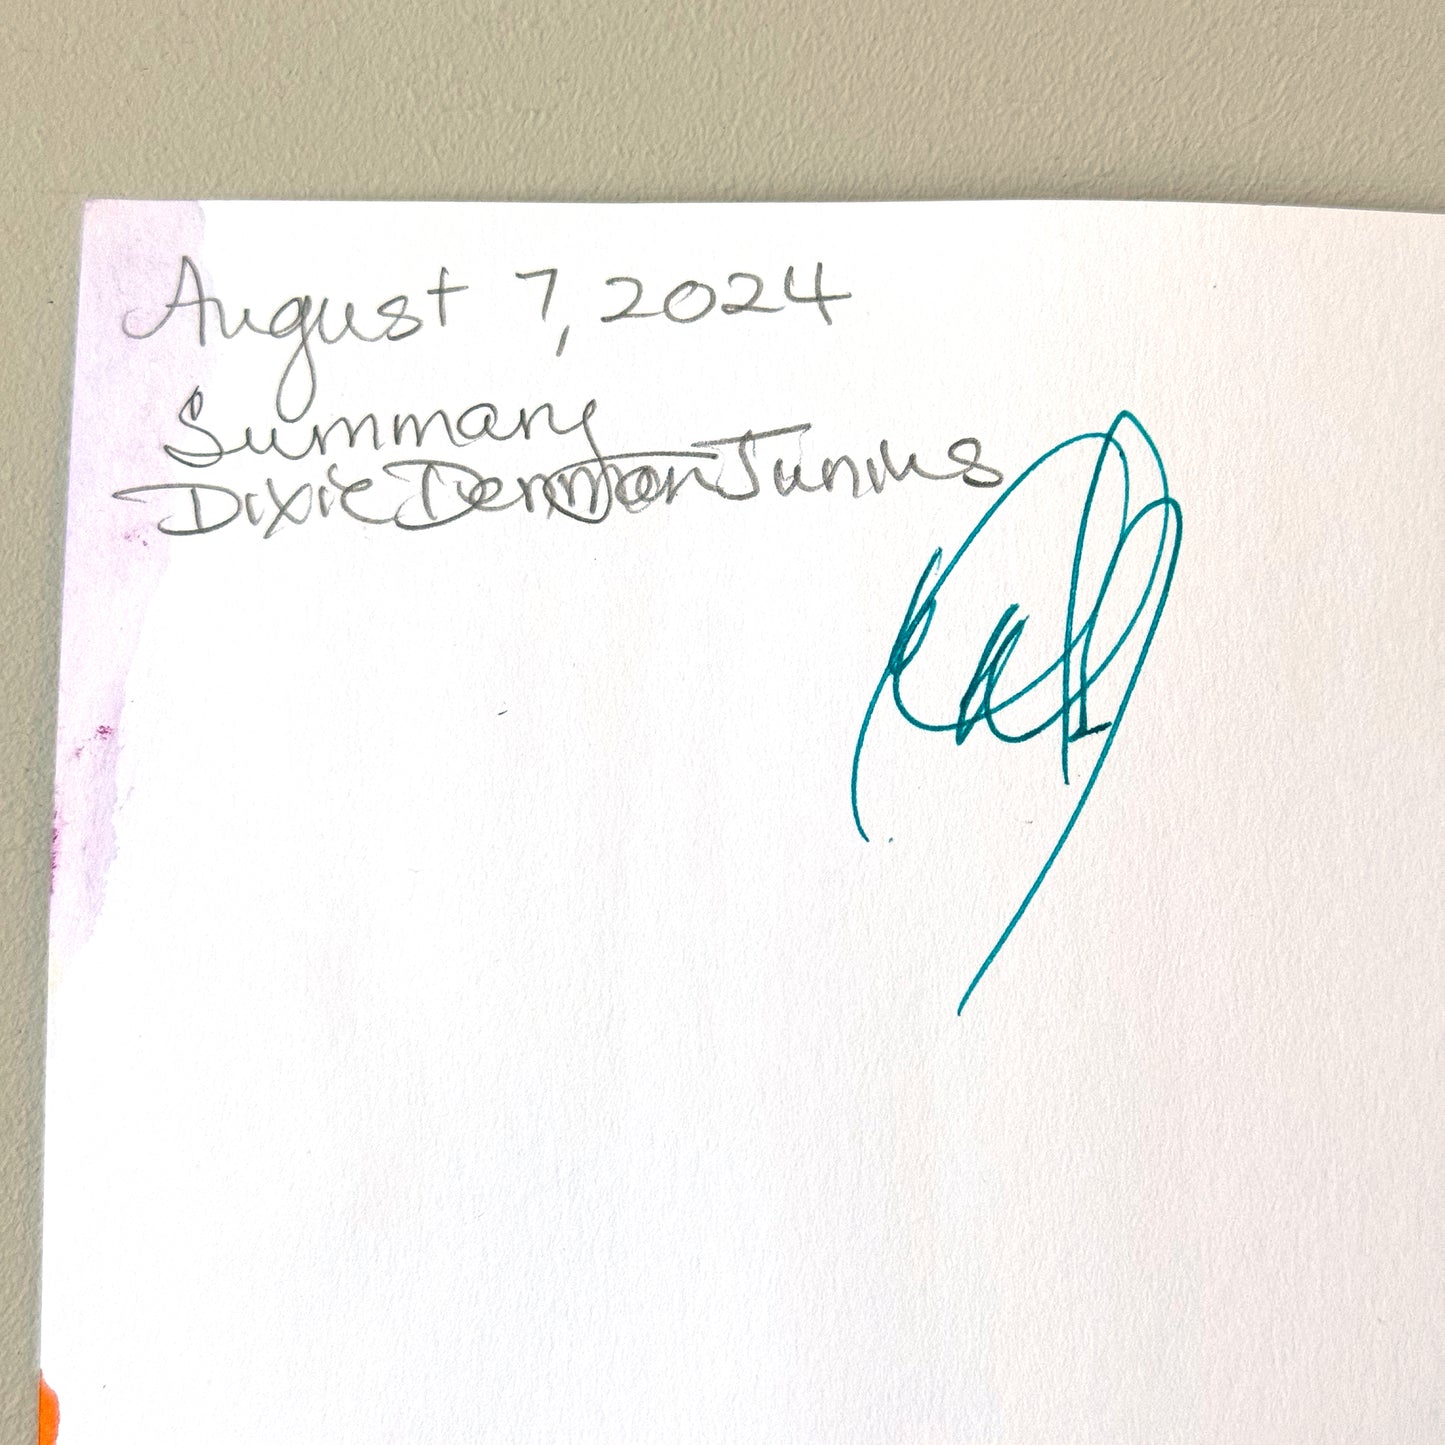 August 7, 2024
Summary
Dixie Denton Junius